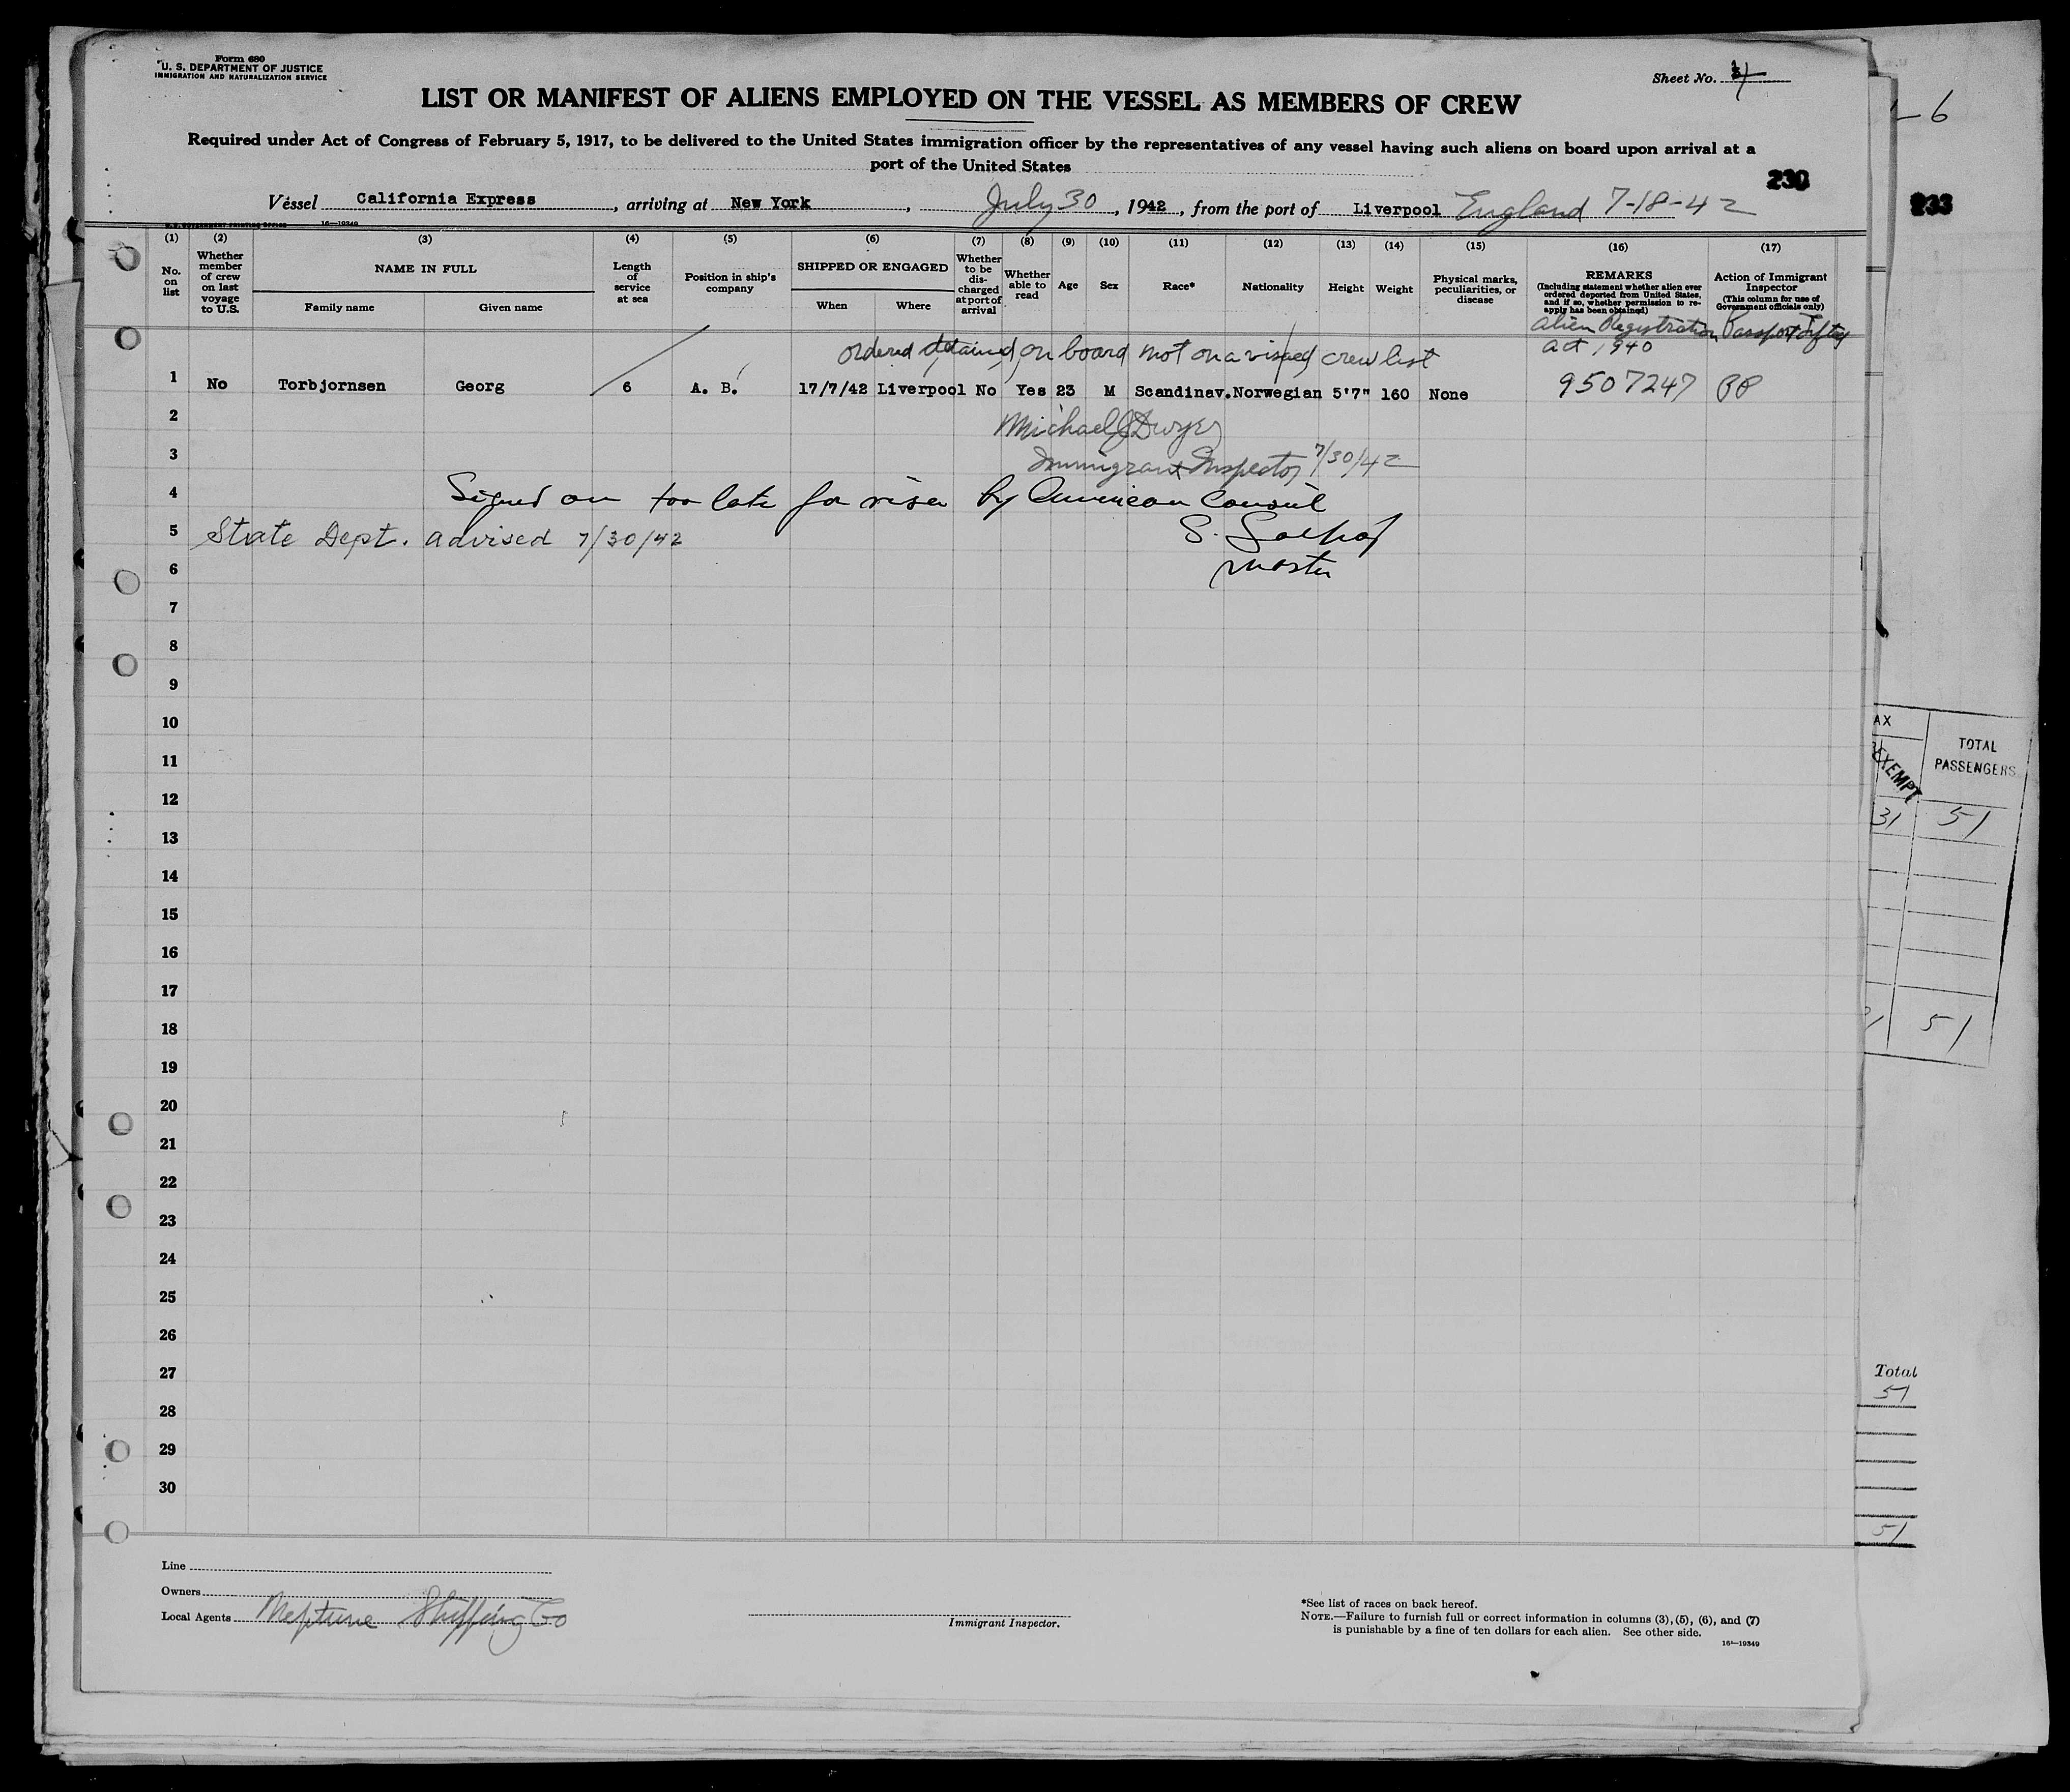 Form 680
U. S. DEPARTMENT OF JUSTICE
IMMIGRATION AND NATURALIZATION SERVICE
Sheet No. 4
LIST OR MANIFEST OF ALIENS EMPLOYED ON THE VESSEL AS MEMBERS OF CREW
Required under Act of Congress of February 5, 1917, to be delivered to the United States immigration officer by the representatives of any vessel having such aliens on board upon arrival at a
port of the United States
- 6
230
233
Vessel California Express, arriving at New York, July 30, 1942, from the port of Liverpool England 7-18-42
U. S. GOVERNMENT PRINTING OFFICE 16—19349
(1) (2) (3) (4) (5) (6) (7) (8) (9) (10) (11) (12) (13) (14) (15) (16) (17)
No. on list
Whether member of crew on last voyage to U.S.
NAME IN FULL
Family name Given name
Length of service at sea
Position in ship's company
SHIPPED OR ENGAGED
When Where
Whether to be discharged at port of arrival
Whether able to read
Age
Sex
Race*
Nationality
Height
Weight
Physical marks, peculiarities, or disease
REMARKS
(Including statement whether alien ever ordered deported from United States, and if so, whether permission to re-apply has been obtained)
Action of Immigrant Inspector
(This column for use of Government officials only)
Alien Registration Passport
act, 1940
ordered detained on board not on a visaed crew list
1 No Torbjornsen Georg 6 A. B. 17/7/42 Liverpool No Yes 23 M Scandinav. Norwegian 5'7" 160 None 9507247 PP
2 Michael J Dwyer
3 Immigrant Inspector 7/30/42
4 Signed on too late for visa by American Consul
5 State Dept. advised 7/30/42 S.
6 Master
7
8
9
10
11
12
13
14
15
16
17
18
19
20
21
22
23
24
25
26
27
28
29
30
AX
EXEMPT
TOTAL
PASSENGERS
31 51
51
Total
51
51
Line
Owners
Local Agents Neptune Shipping Co
Immigrant Inspector.
*See list of races on back hereof.
NOTE.—Failure to furnish full or correct information in columns (3), (5), (6), and (7)
is punishable by a fine of ten dollars for each alien. See other side.
16—19349